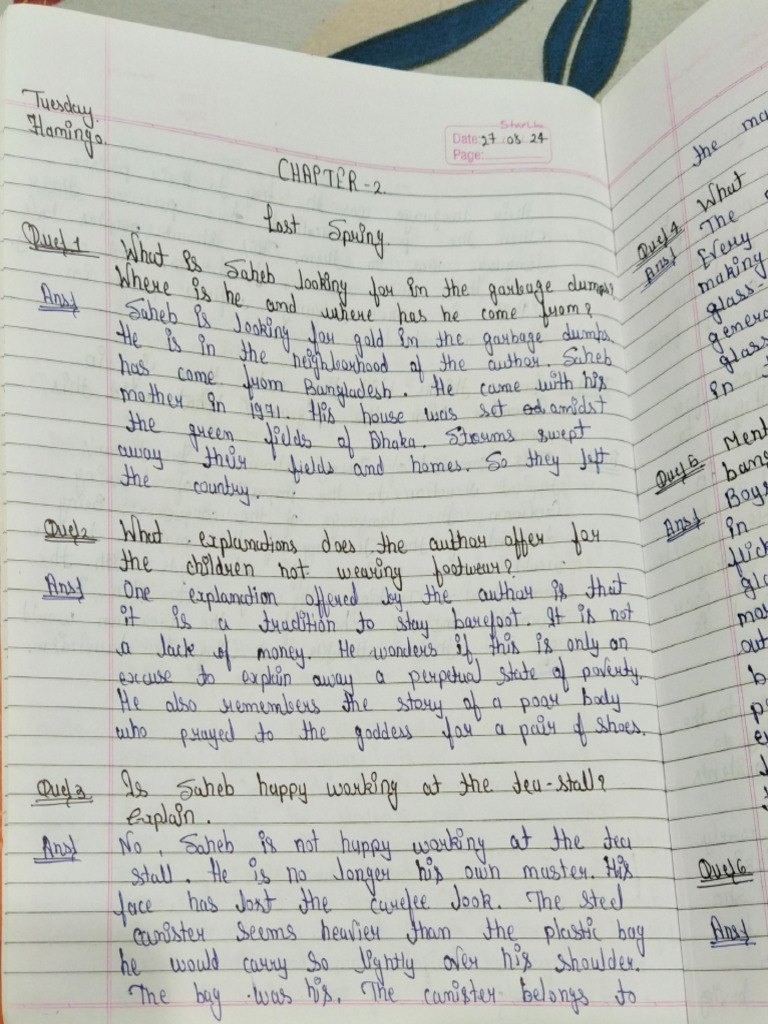 Tuesday.
Flamingo.
StarLine
Date: 27 08 24
Page:
CHAPTER-2.
Lost Spring.
Que1 What is Saheb looking for in the garbage dumps?
Where is he and where has he come from?
Ans) Saheb is looking for gold in the garbage dumps.
He is in the neighborhood of the author. Saheb
has come from Bangladesh. He came with his
mother in 1971. His house was set amidst
the green fields of Dhaka. Storms swept
away their fields and homes. So they left
the country.
Que2 What explanations does the author offer for
the children not wearing footwear?
Ans) One explanation offered by the author is that
it is a tradition to stay barefoot. It is not
a lack of money. He wonders if this is only an
excuse to explain away a perpetual state of poverty.
He also remembers the story of a poor body
who prayed to the goddess for a pair of shoes.
Que3 Is Saheb happy working at the tea-stall?
Explain.
Ans) No, Saheb is not happy working at the tea
stall. He is no longer his own master. His
face has lost the carefee look. The steel
canister seems heavier than the plastic bag
he would carry so lightly over his shoulder.
The bag was his. The canister belongs to
the ma
Que4 What
Ans) The
Every
making
glass-
genera
glass
in
Que5 Ment
bang
Ans) Boys
in
flick
gla
mos
out
b
Que6
Ans)